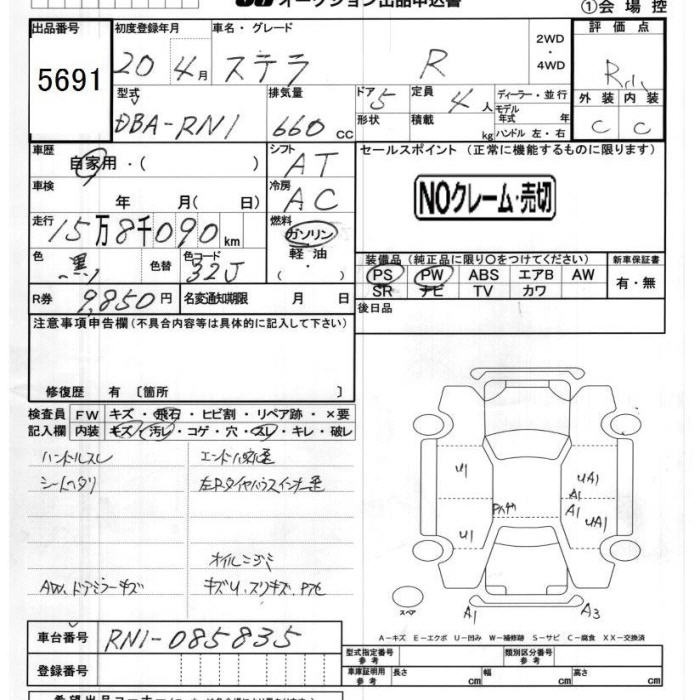 オークション出品申込書
①会場控
出品番号 初度登録年月 車名・グレード 評価点
5691 20 4月 ステラ R 2WD・4WD R
型式 排気量 ドア 5 定員 4人 ディーラー・並行 外装 内装
DBA-RN1 660cc 形状 積載 kg モデル年式 年 ハンドル 左・右 C C
車歴 シフト セールスポイント (正常に機能するものに限ります)
自家用・( ) AT
車検 冷房 NOクレーム・売切
年 月( 日) AC
走行 15万8千090km 燃料 ガソリン
軽油・( )
色 黒 色替 色コード 32J
装備品 (純正品に限り○をつけてください) 新車保証書
PS PW ABS エアB AW 有・無
SR ナビ TV カワ
R券 9,850円 名変通知期限 月 日 後日品
注意事項申告欄 (不具合内容等は具体的に記入して下さい)
修復歴 有 〔箇所 〕
検査員 FW キズ・飛石・ヒビ割・リペア跡・×要
記入欄 内装 キズ・汚レ・コゲ・穴・スレ・キレ・破レ
ハンドルスレ
シートヘタリ
オイルニジミ
AW、ドアミラーキズ
U1 UA1
A1
A1
U1 UA1
スペア A1 A3
A-キズ E-エクボ U-凹み W-補修跡 S-サビ C-腐食 XX-交換済
車台番号 RN1-085835
登録番号
型式指定番号 参考 類別区分番号 参考
車庫証明用 参考 長さ cm 幅 cm 高さ cm